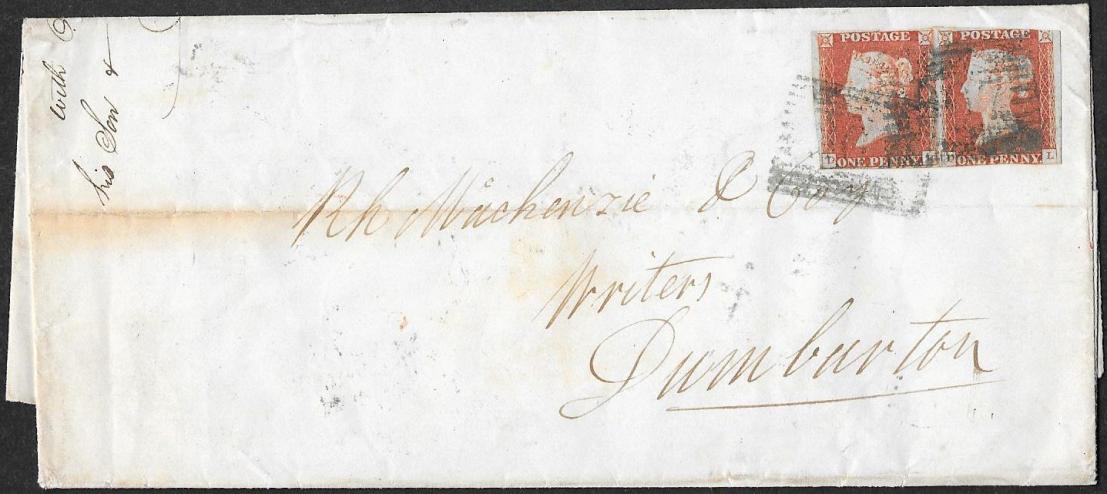 with
his Son &
POSTAGE POSTAGE
ONE PENNY ONE PENNY
D L
Mackenzie & Coy
Writers
Dumbarton